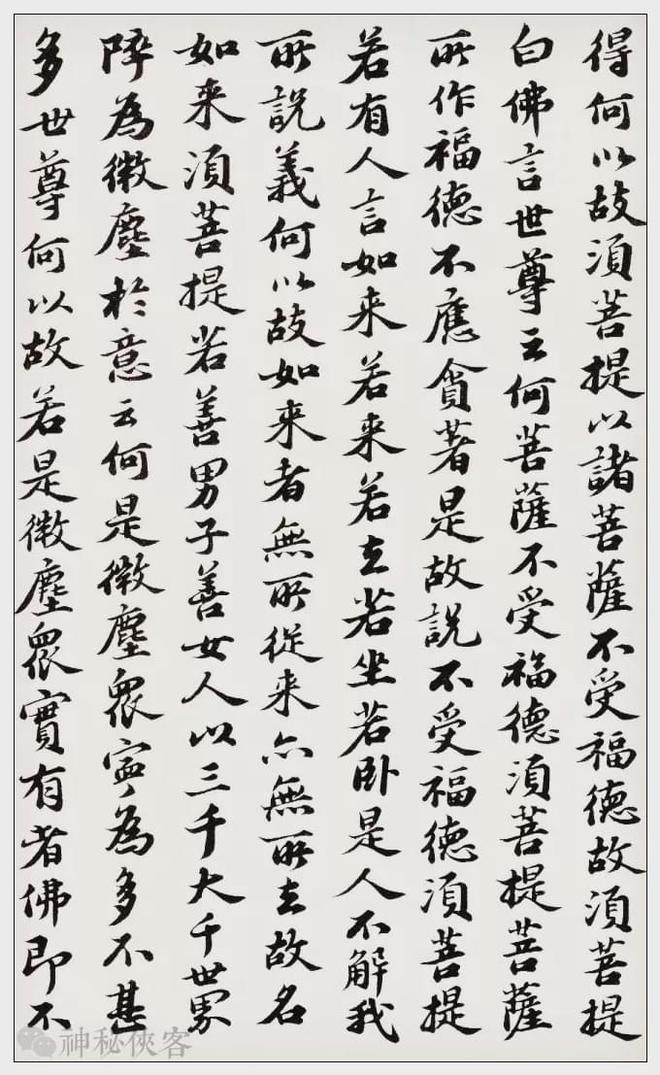 得何以故須菩提以諸菩薩不受福德故須菩提
白佛言世尊云何菩薩不受福德須菩提菩薩
所作福德不應貪著是故說不受福德須菩提
若有人言如来若来若去若坐若卧是人不解我
所說義何以故如来者無所從来亦無所去故名
如来須菩提若善男子善女人以三千大千世界
碎為微塵於意云何是微塵衆寧為多不甚
多世尊何以故若是微塵衆實有者佛即不
神秘俠客